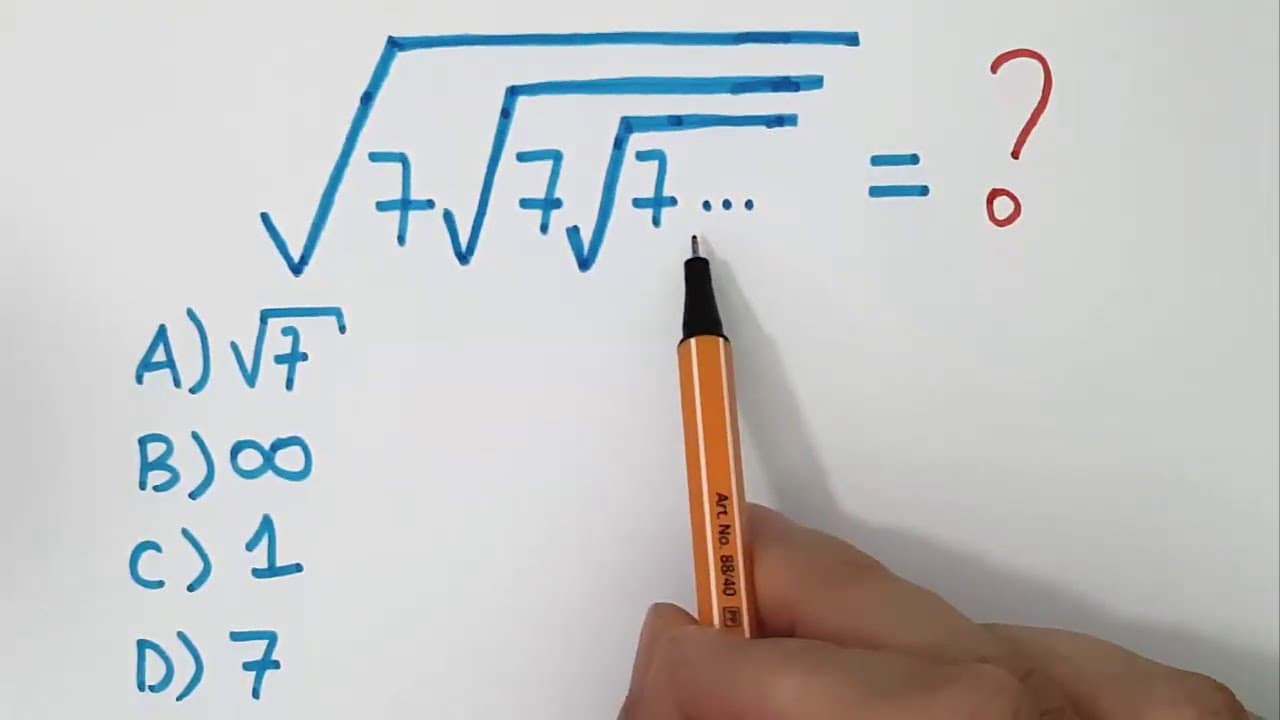 √7√7√7... = ?
A) √7
B) ∞
C) 1
D) 7
Art. No. 88/40 PP